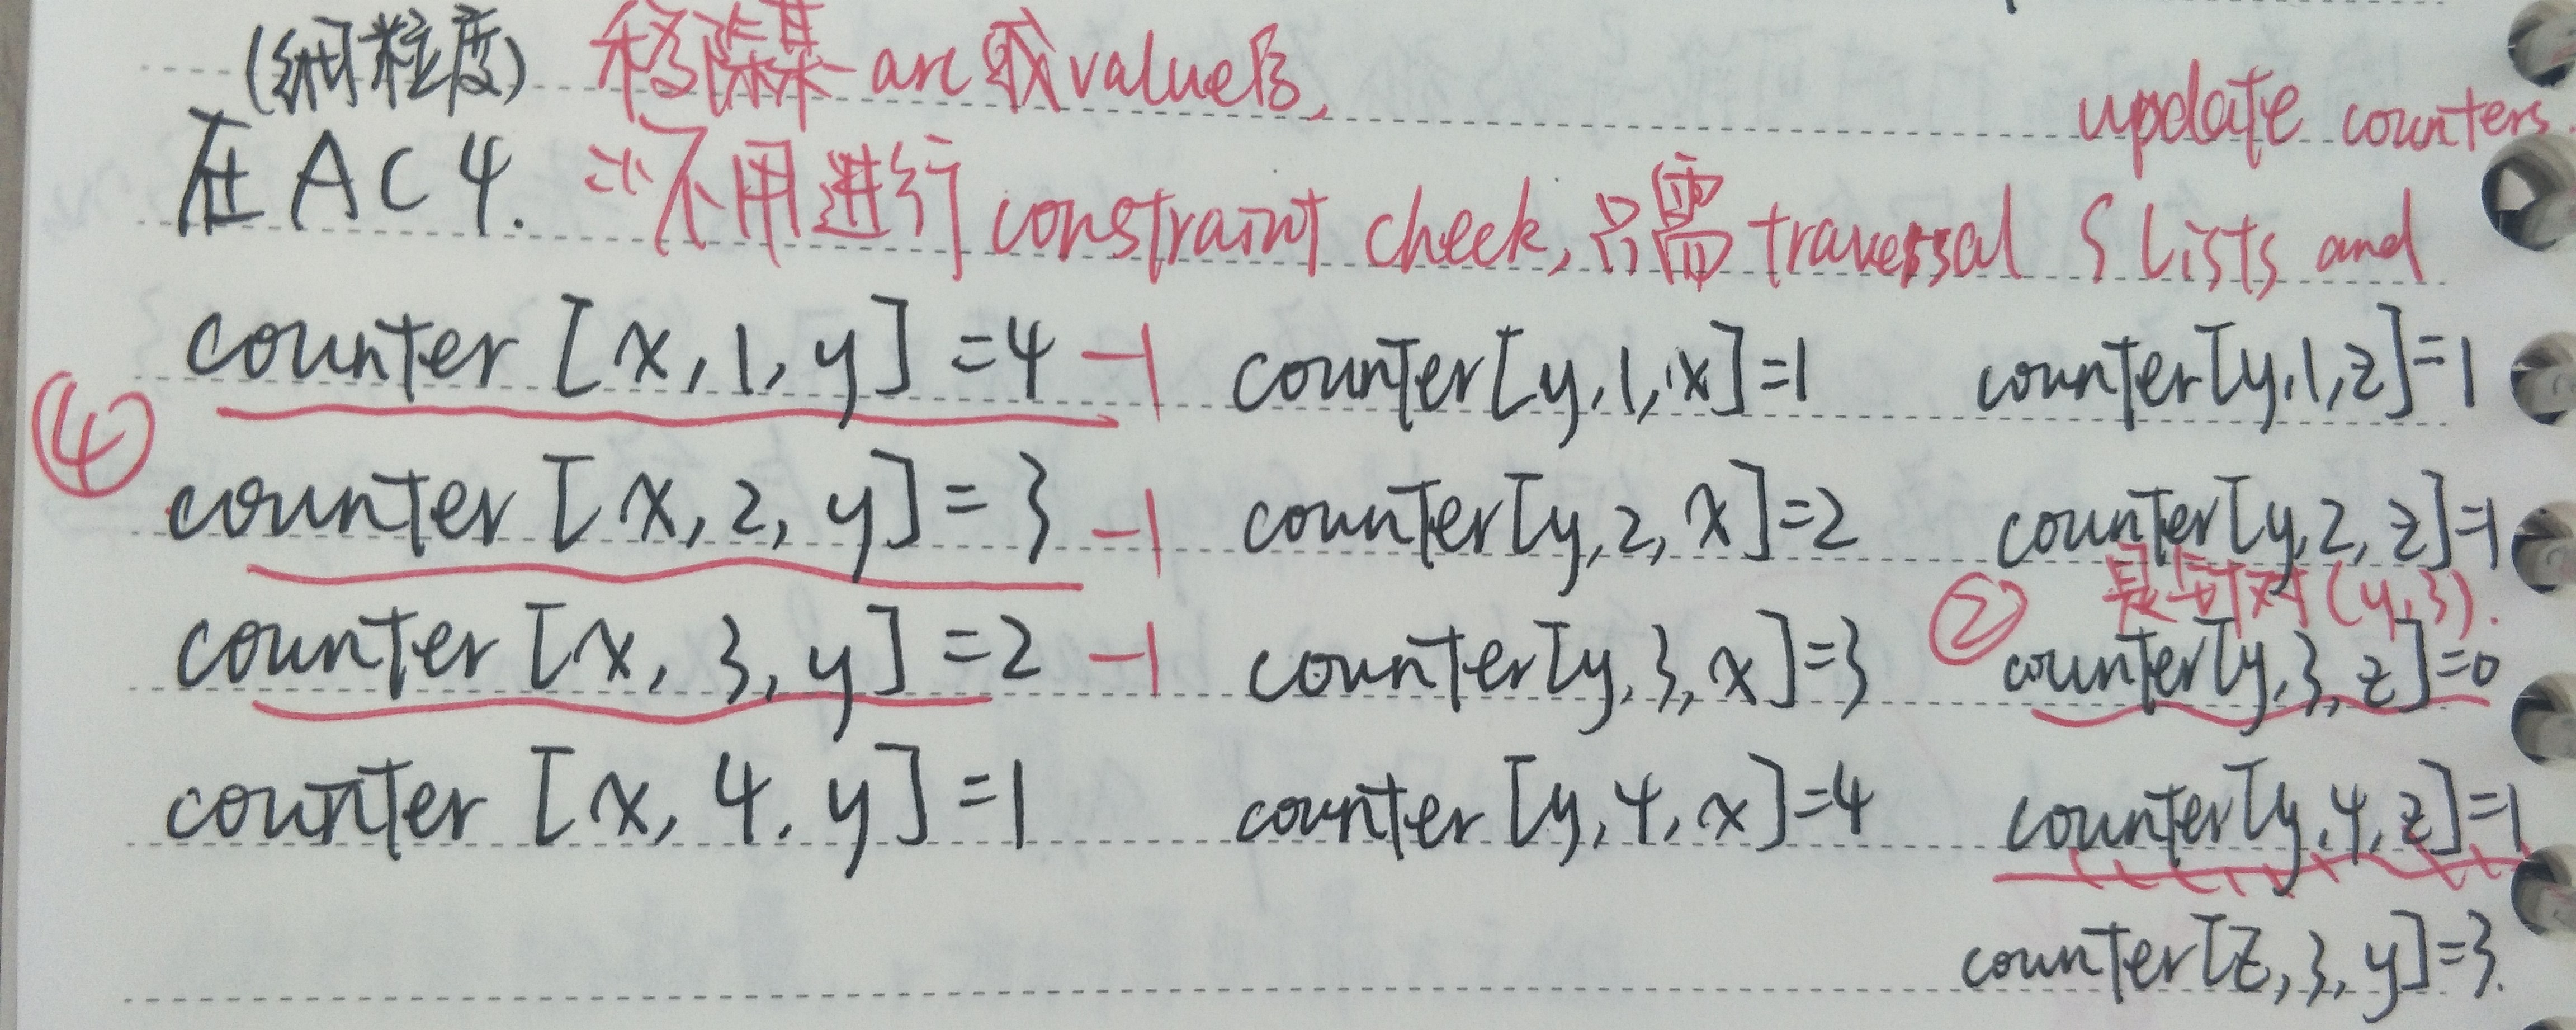 (细粒度) 移除某 arc 或 value后,
update counters
在 AC4. 不用进行 constraint check, 只需 traversal S Lists and
counter [x, 1, y] =4 -1 counter[y,1,x]=1 counter[y,1,z]=1
④
counter [x, 2, y] =3 -1 counter[y,2,x]=2 counter[y,2,z]=1
② (y,3).
counter [x, 3, y] =2 -1 counter[y,3,x]=3 counter[y,3,z]=0
counter [x, 4, y] =1 counter[y,4,x]=4 counter[y,4,z]=1
counter[z,3,y]=3.